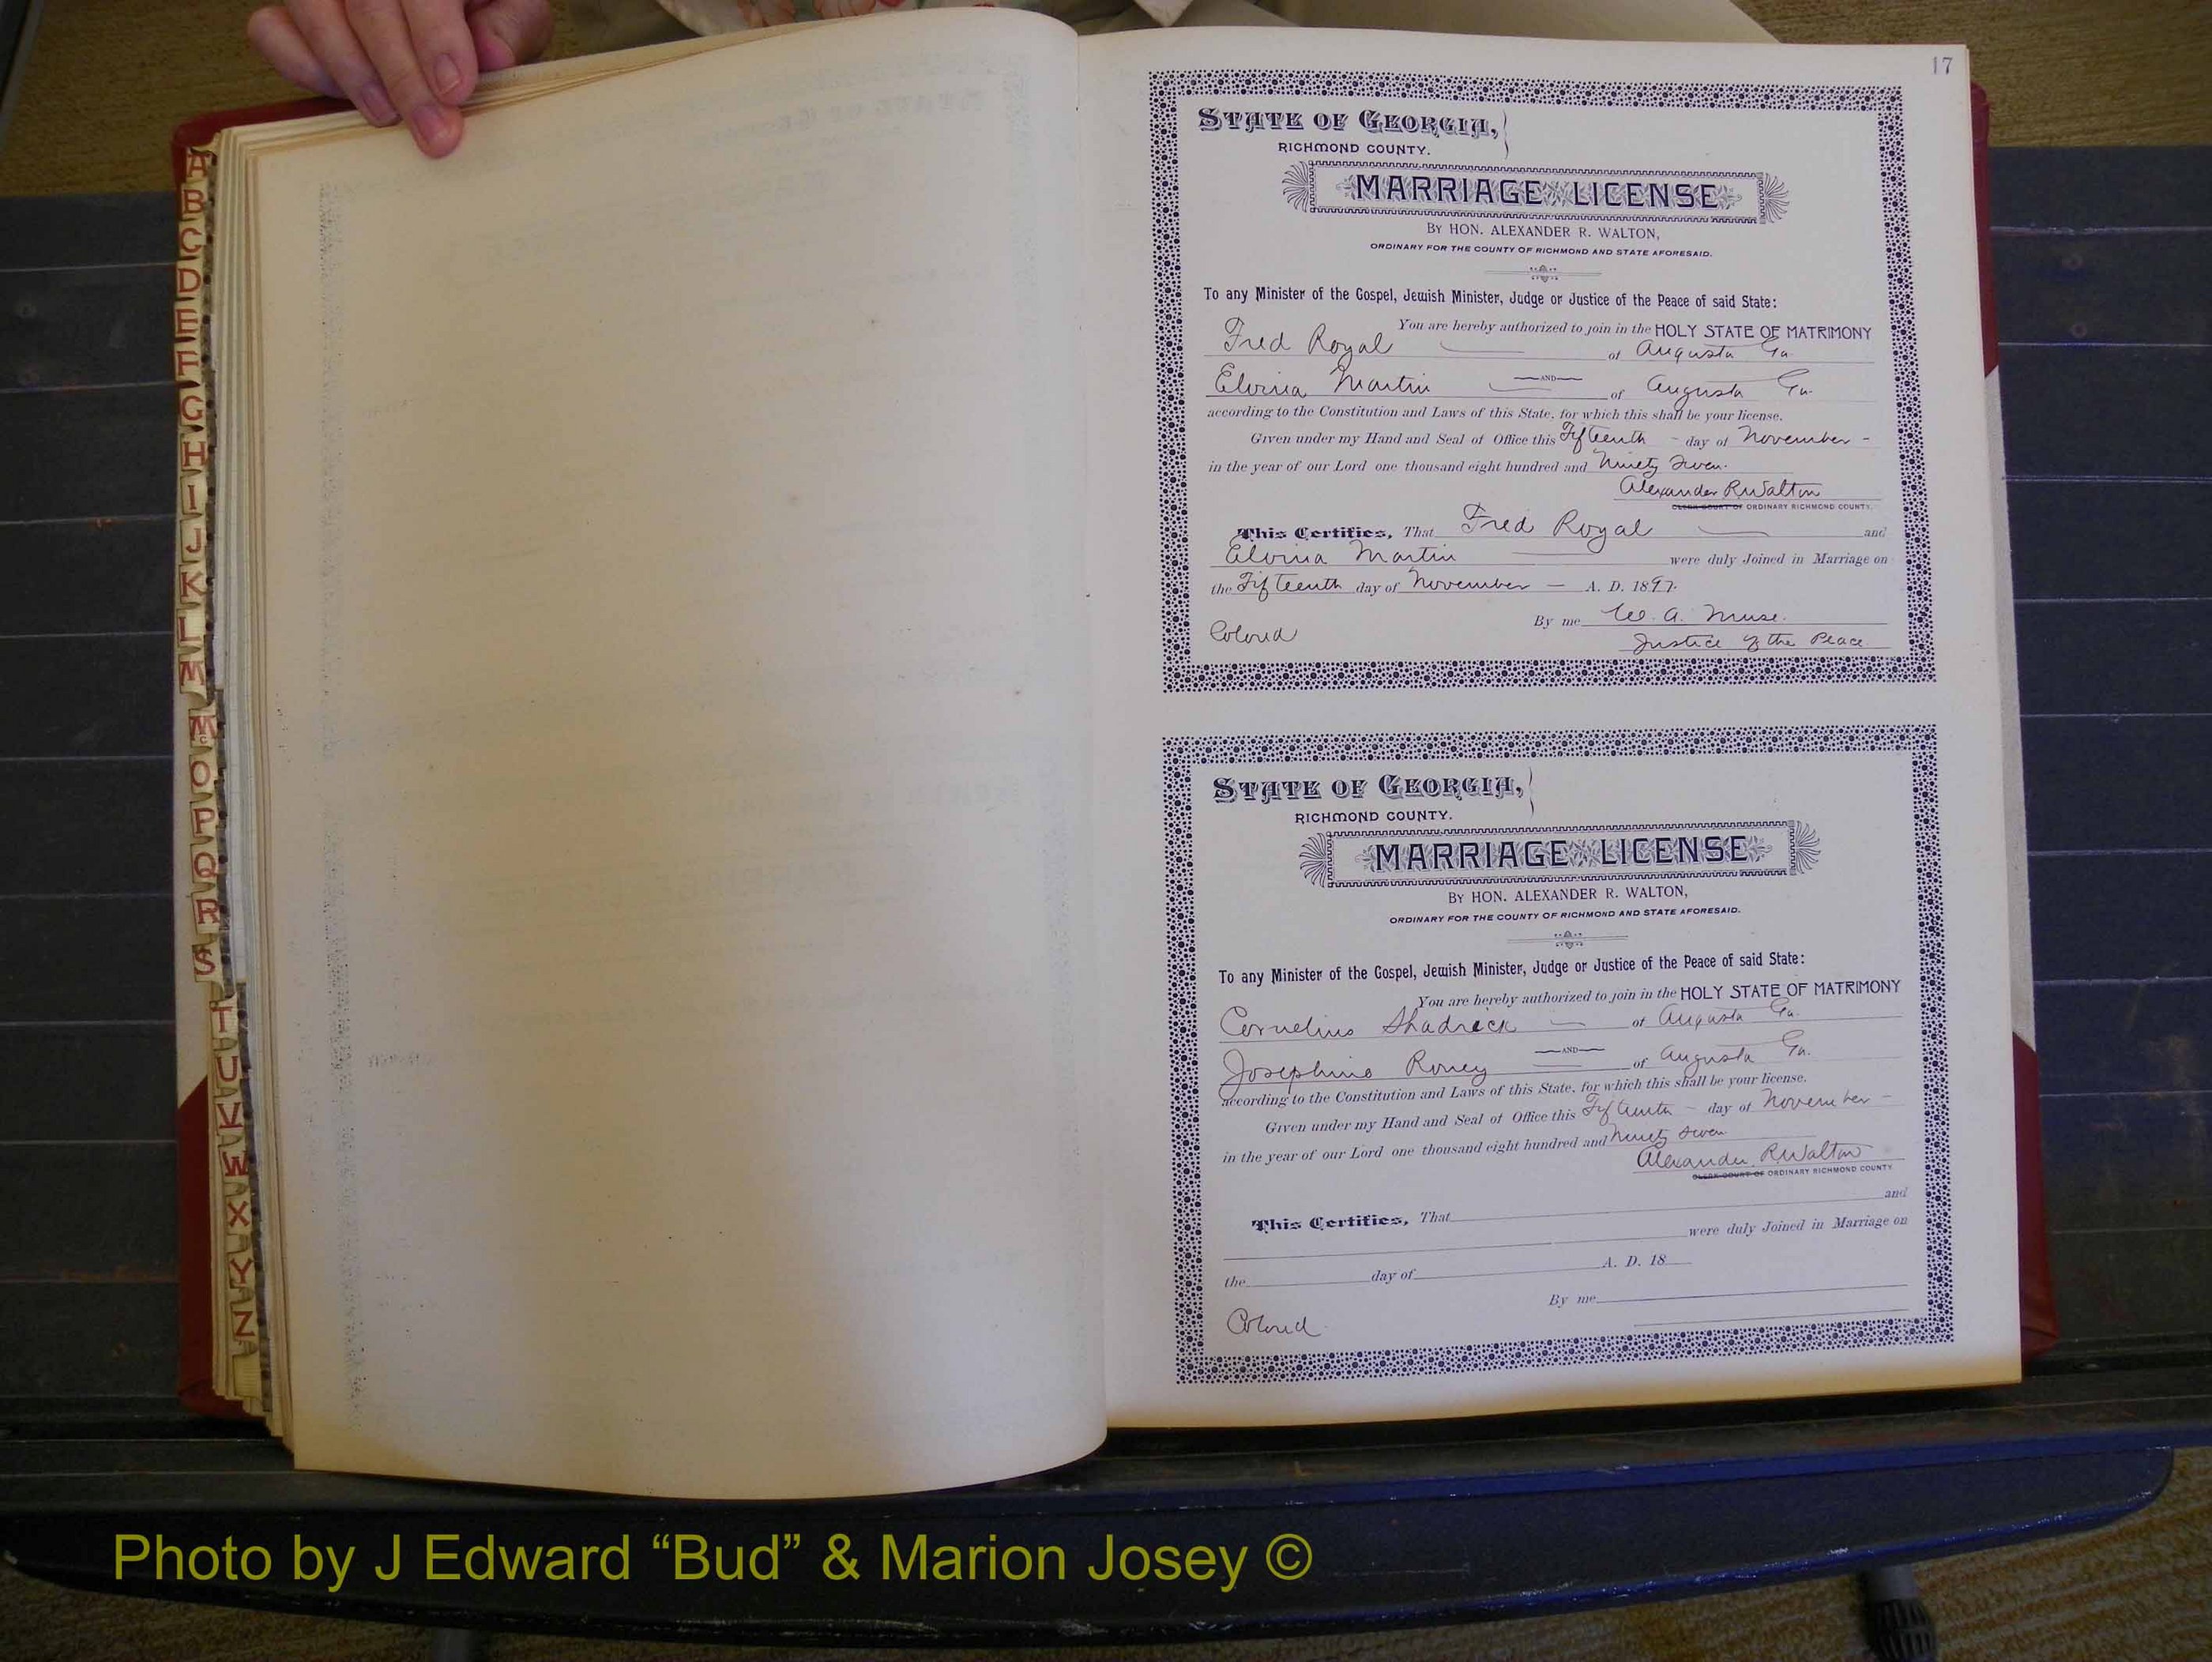 A
B
C
D
E
F
G
H
I
J
K
L
M
Mc
O
P
Q
R
S
T
U
V
W
X
Y
Z
17
STATE OF GEORGIA,
RICHMOND COUNTY.
MARRIAGE LICENSE
BY HON. ALEXANDER R. WALTON,
ORDINARY FOR THE COUNTY OF RICHMOND AND STATE AFORESAID.
To any Minister of the Gospel, Jewish Minister, Judge or Justice of the Peace of said State:
You are hereby authorized to join in the HOLY STATE OF MATRIMONY
Fred Royal of Augusta Ga.
AND
Elvina Martin of Augusta Ga.
according to the Constitution and Laws of this State, for which this shall be your license.
Given under my Hand and Seal of Office this Fifteenth - day of November -
in the year of our Lord one thousand eight hundred and Ninety Seven.
Alexander R Walton
CLERK COURT OF ORDINARY RICHMOND COUNTY.
This Certifies, That Fred Royal and
Elvina Martin were duly Joined in Marriage on
the Fifteenth day of November — A. D. 1897.
By me W. A. Muse.
Colored Justice of the Peace
STATE OF GEORGIA,
RICHMOND COUNTY.
MARRIAGE LICENSE
BY HON. ALEXANDER R. WALTON,
ORDINARY FOR THE COUNTY OF RICHMOND AND STATE AFORESAID.
To any Minister of the Gospel, Jewish Minister, Judge or Justice of the Peace of said State:
You are hereby authorized to join in the HOLY STATE OF MATRIMONY
Cornelius Shadrick — of Augusta Ga.
AND
Josephine Roney of Augusta Ga.
according to the Constitution and Laws of this State, for which this shall be your license.
Given under my Hand and Seal of Office this Fifteenth - day of November -
in the year of our Lord one thousand eight hundred and Ninety Seven
Alexander R Walton
CLERK COURT OF ORDINARY RICHMOND COUNTY
This Certifies, That and
were duly Joined in Marriage on
the day of A. D. 18
By me
Colored
Photo by J Edward “Bud” & Marion Josey ©